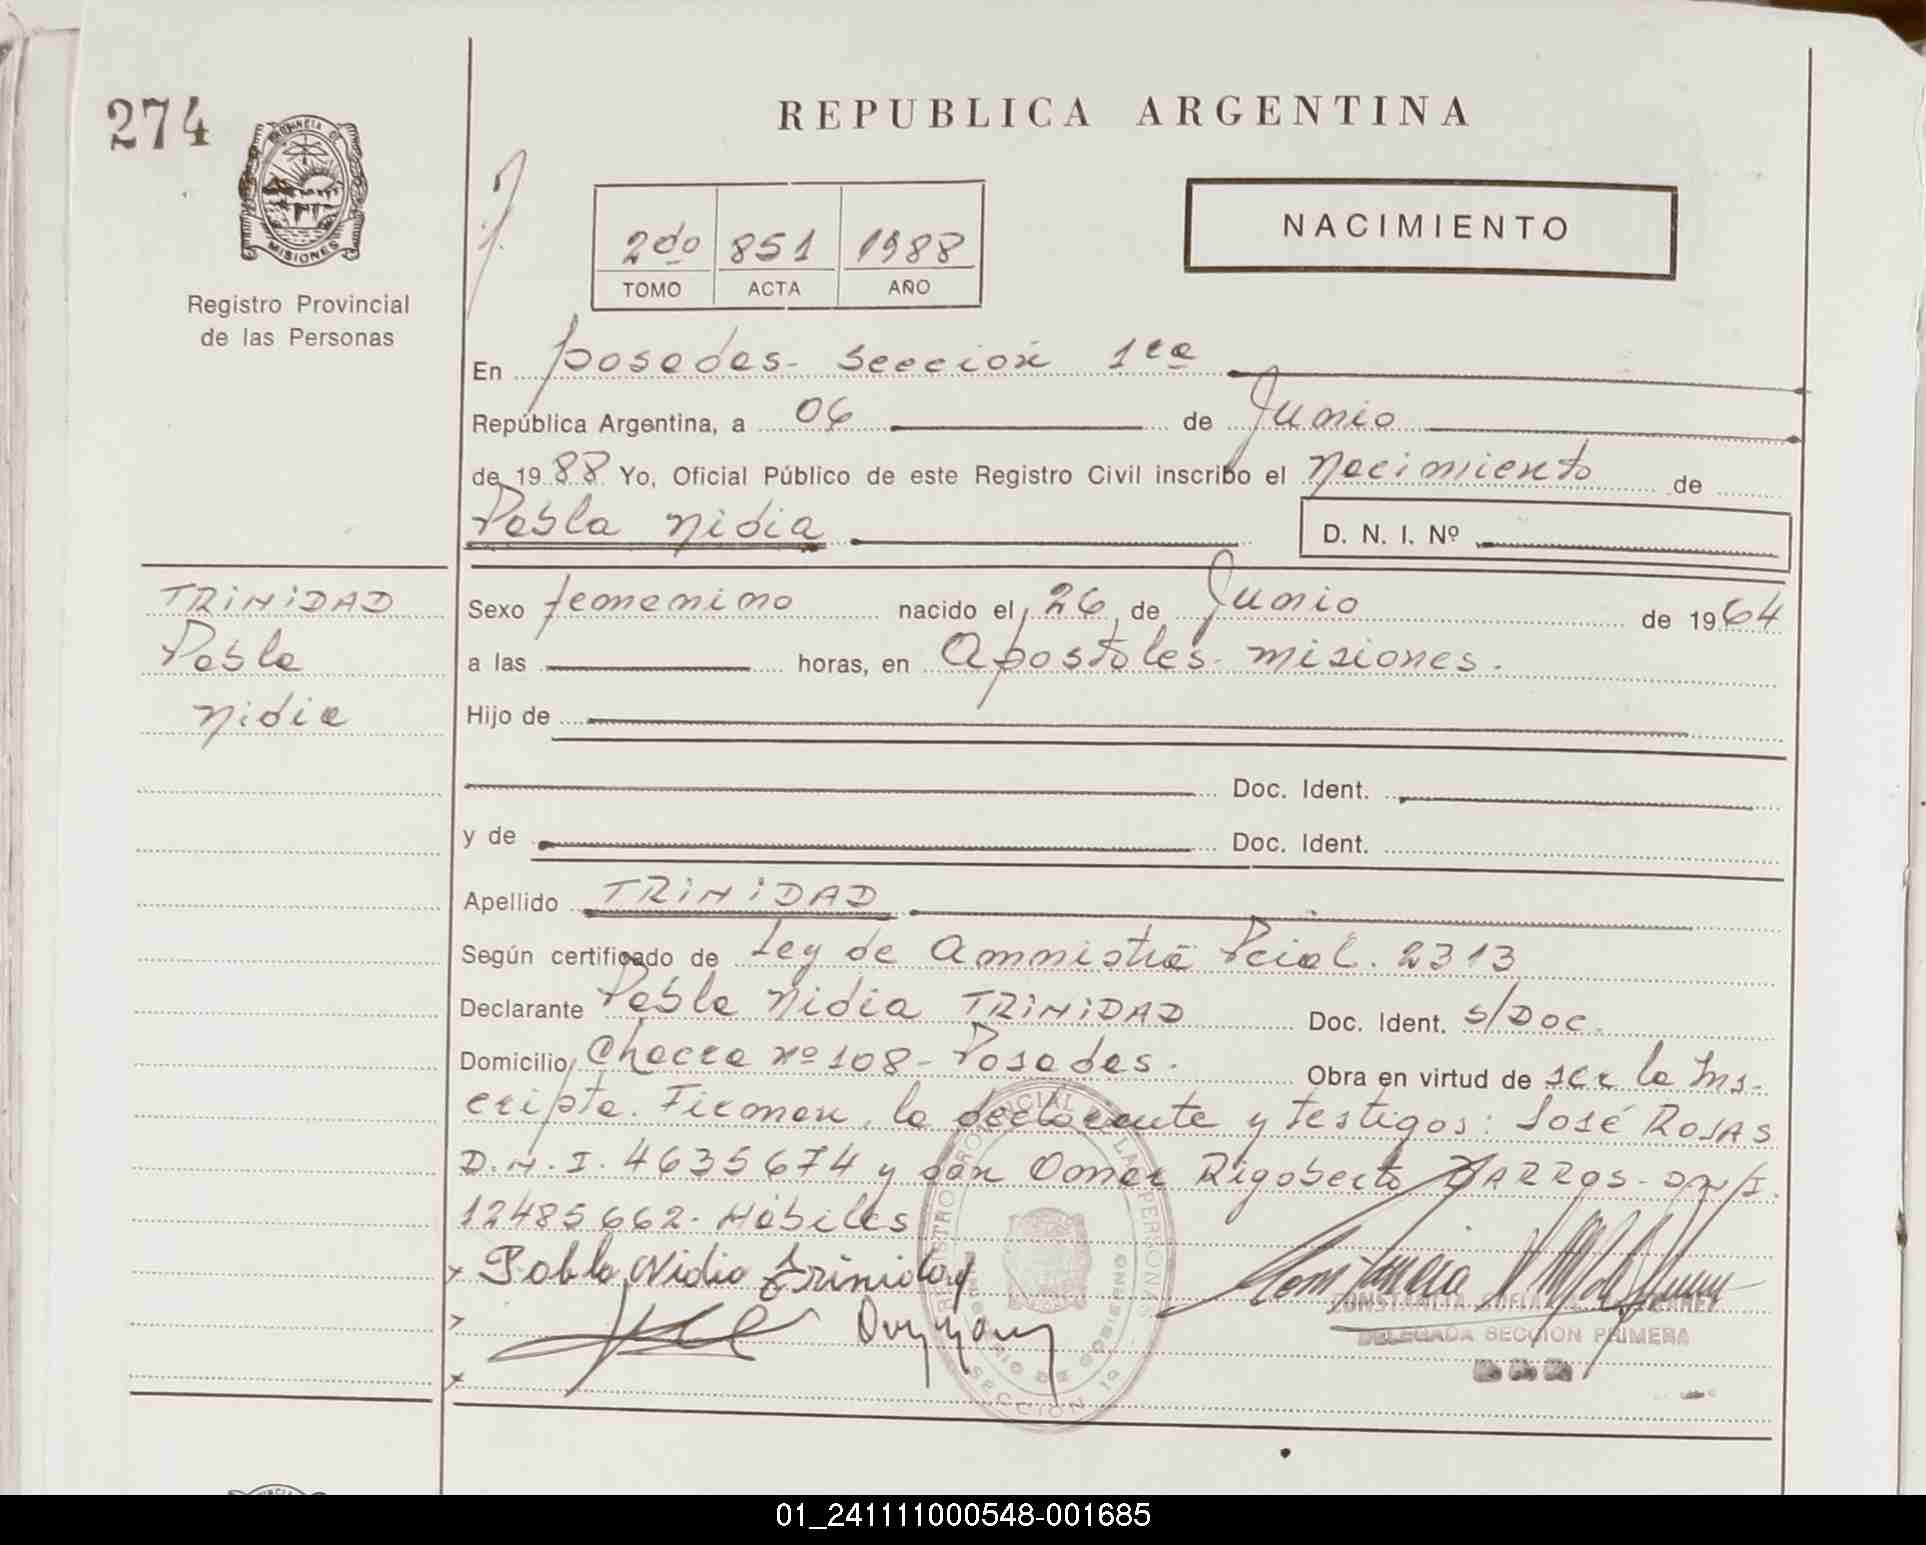 274
REPUBLICA ARGENTINA
PROVINCIA DE
MISIONES
Registro Provincial
de las Personas
2do 851 1988
TOMO ACTA AÑO
NACIMIENTO
En Posadas- Sección 1ra
República Argentina, a 06 de Junio
de 1988 Yo, Oficial Público de este Registro Civil inscribo el Nacimiento de
Pabla Nidia D. N. I. Nº
TRINIDAD
Pabla
Nidia
Sexo femenino nacido el 26 de Junio de 1964
a las horas, en Apostoles- misiones.
Hijo de
Doc. Ident.
y de Doc. Ident.
Apellido TRINIDAD
Según certificado de Ley de Amnistia Pcial. 2313
Declarante Pabla Nidia TRINIDAD Doc. Ident. s/Doc.
Domicilio Chacra nº 108- Posadas. Obra en virtud de ser la Ins-
cripta. Firman, la declarante y testigos: José ROJAS
D.N.I. 4635674 y don Omar Rigoberto BARROS- DNI.
12485662- Hábiles
Pabla Nidia Trinidad
CONSTANCIA
DELEGADA SECCION PRIMERA
SECCION 1a
01_241111000548-001685